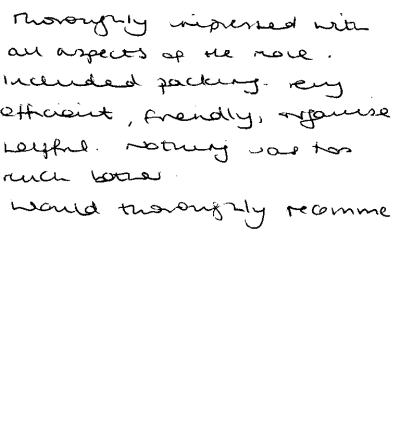 Thoroughly impressed with
all aspects of the move.
Included packing. Very
efficient, friendly, organise
helpful. Nothing was too
much bother.
Would thoroughly recomme